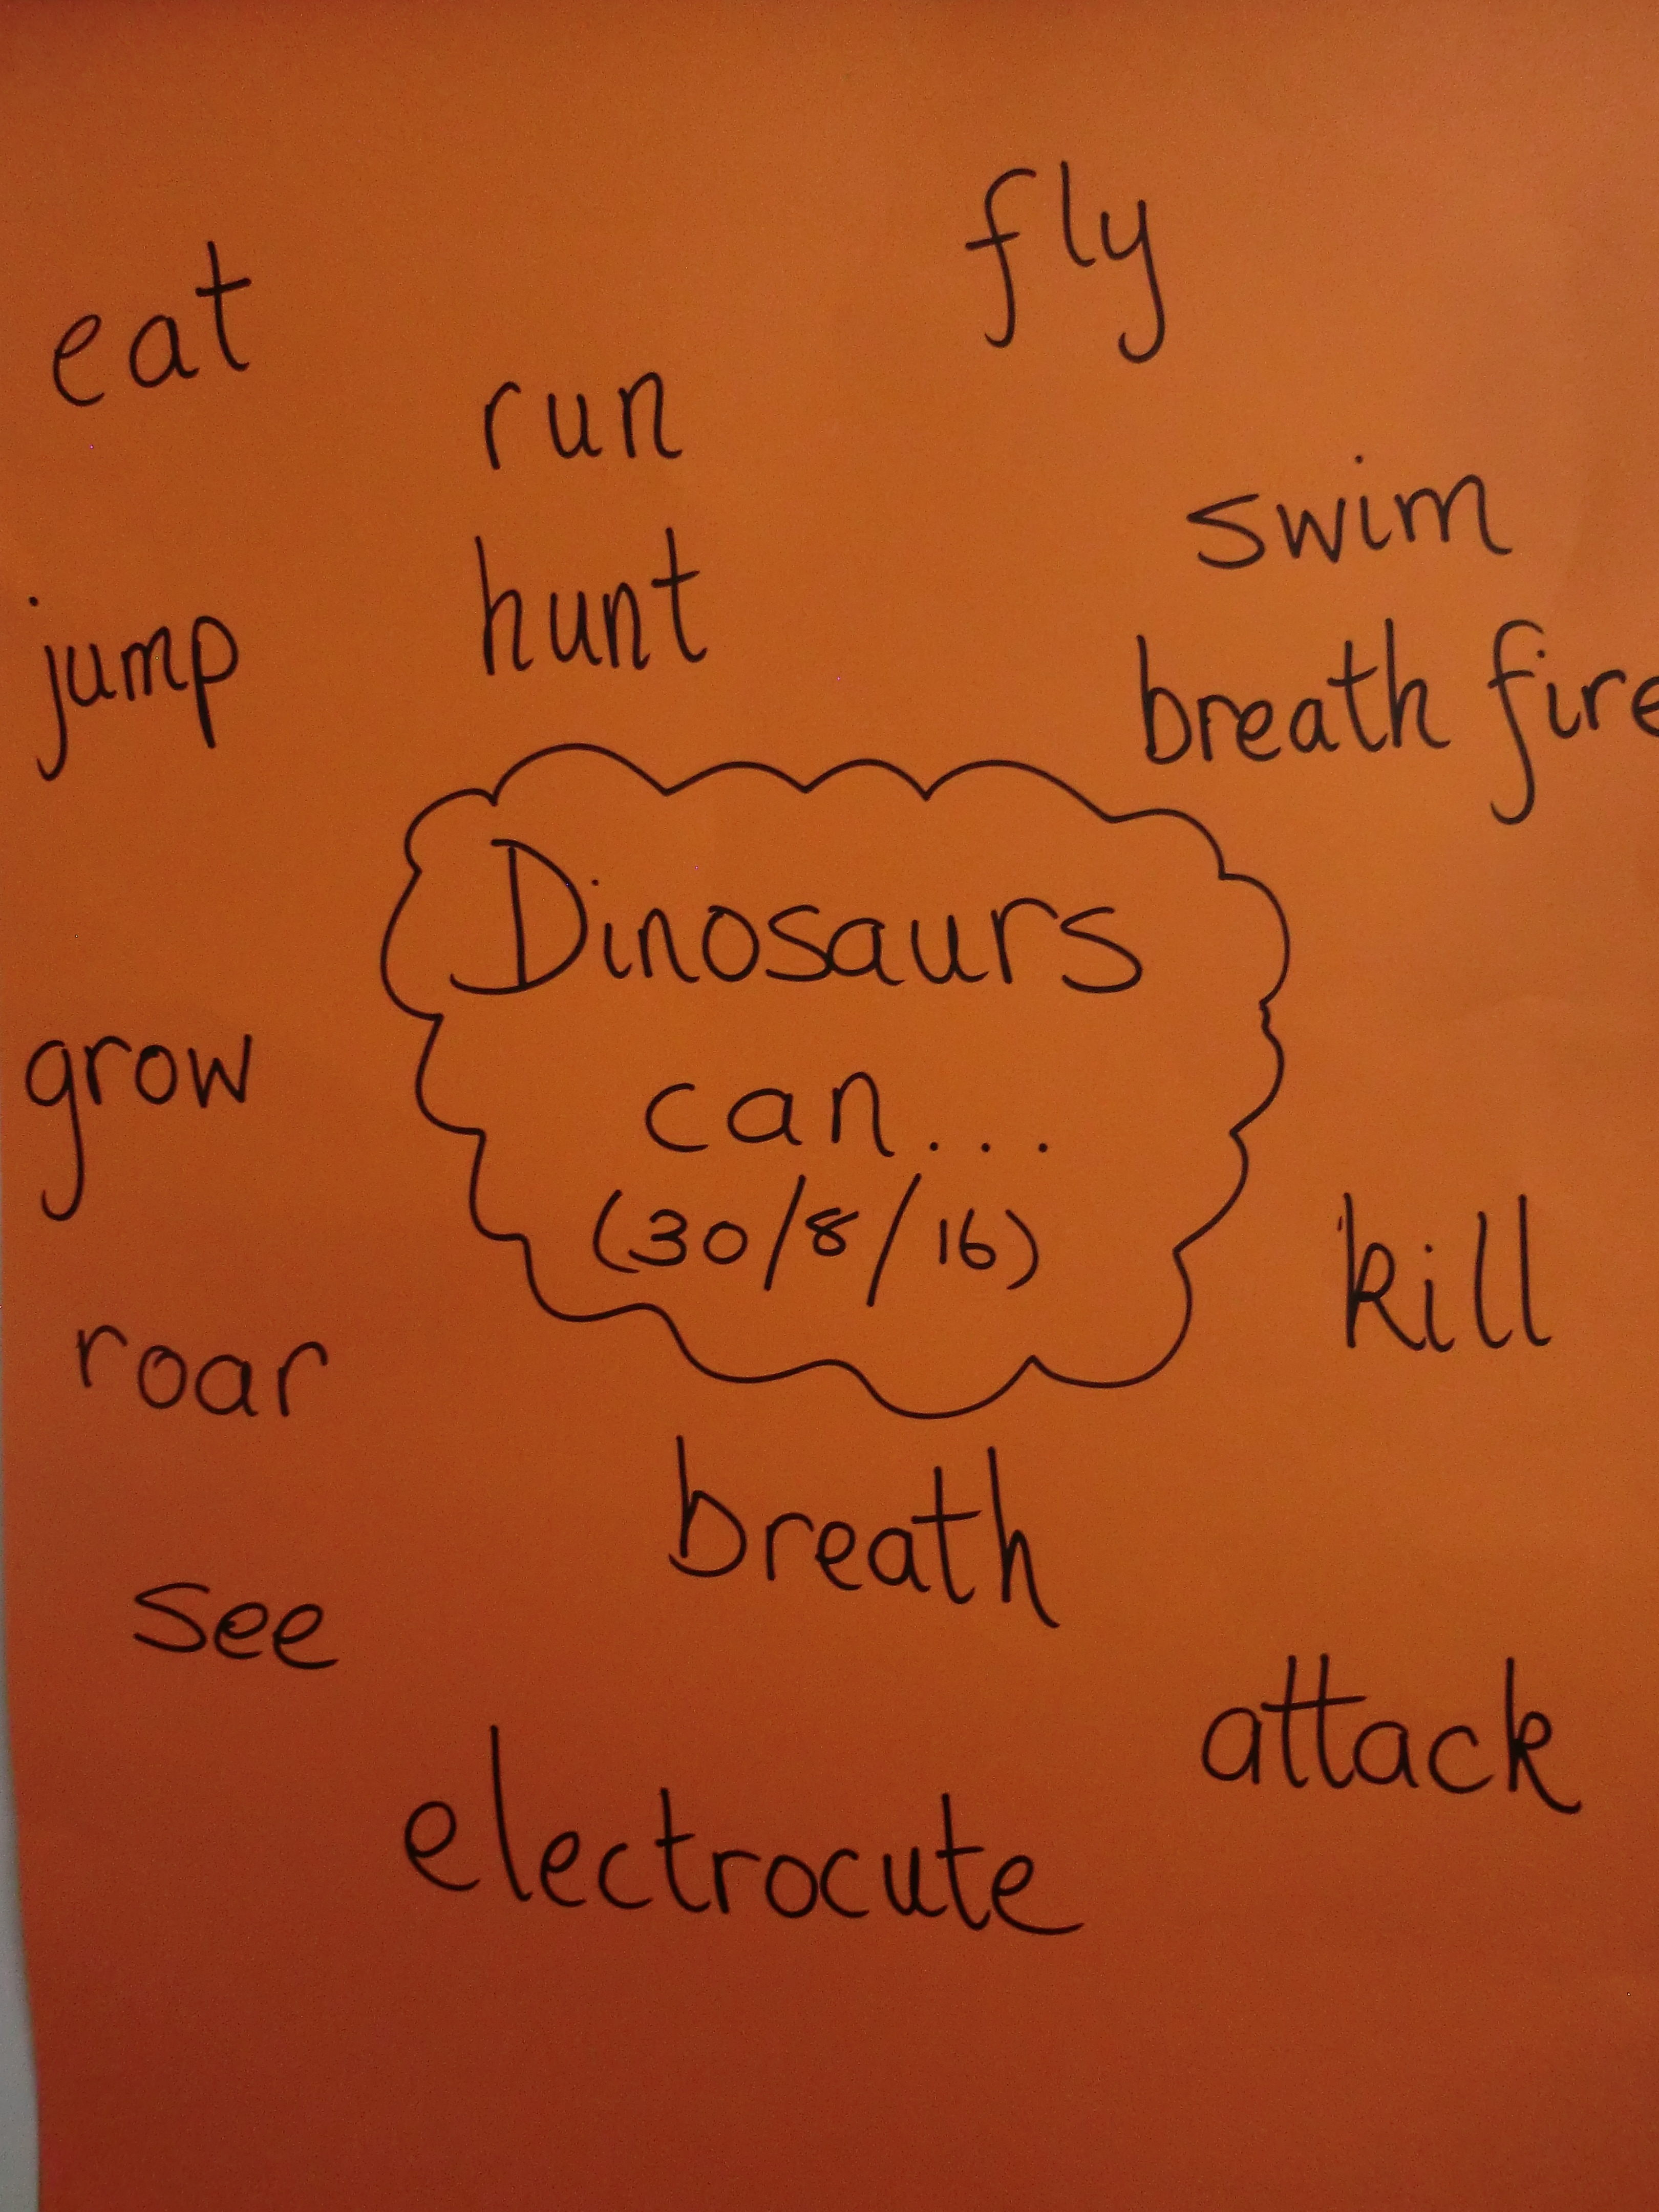 fly
eat
run
swim
hunt
jump
breath fire
Dinosaurs
can...
(30/8/16)
grow
kill
roar
breath
see
attack
electrocute